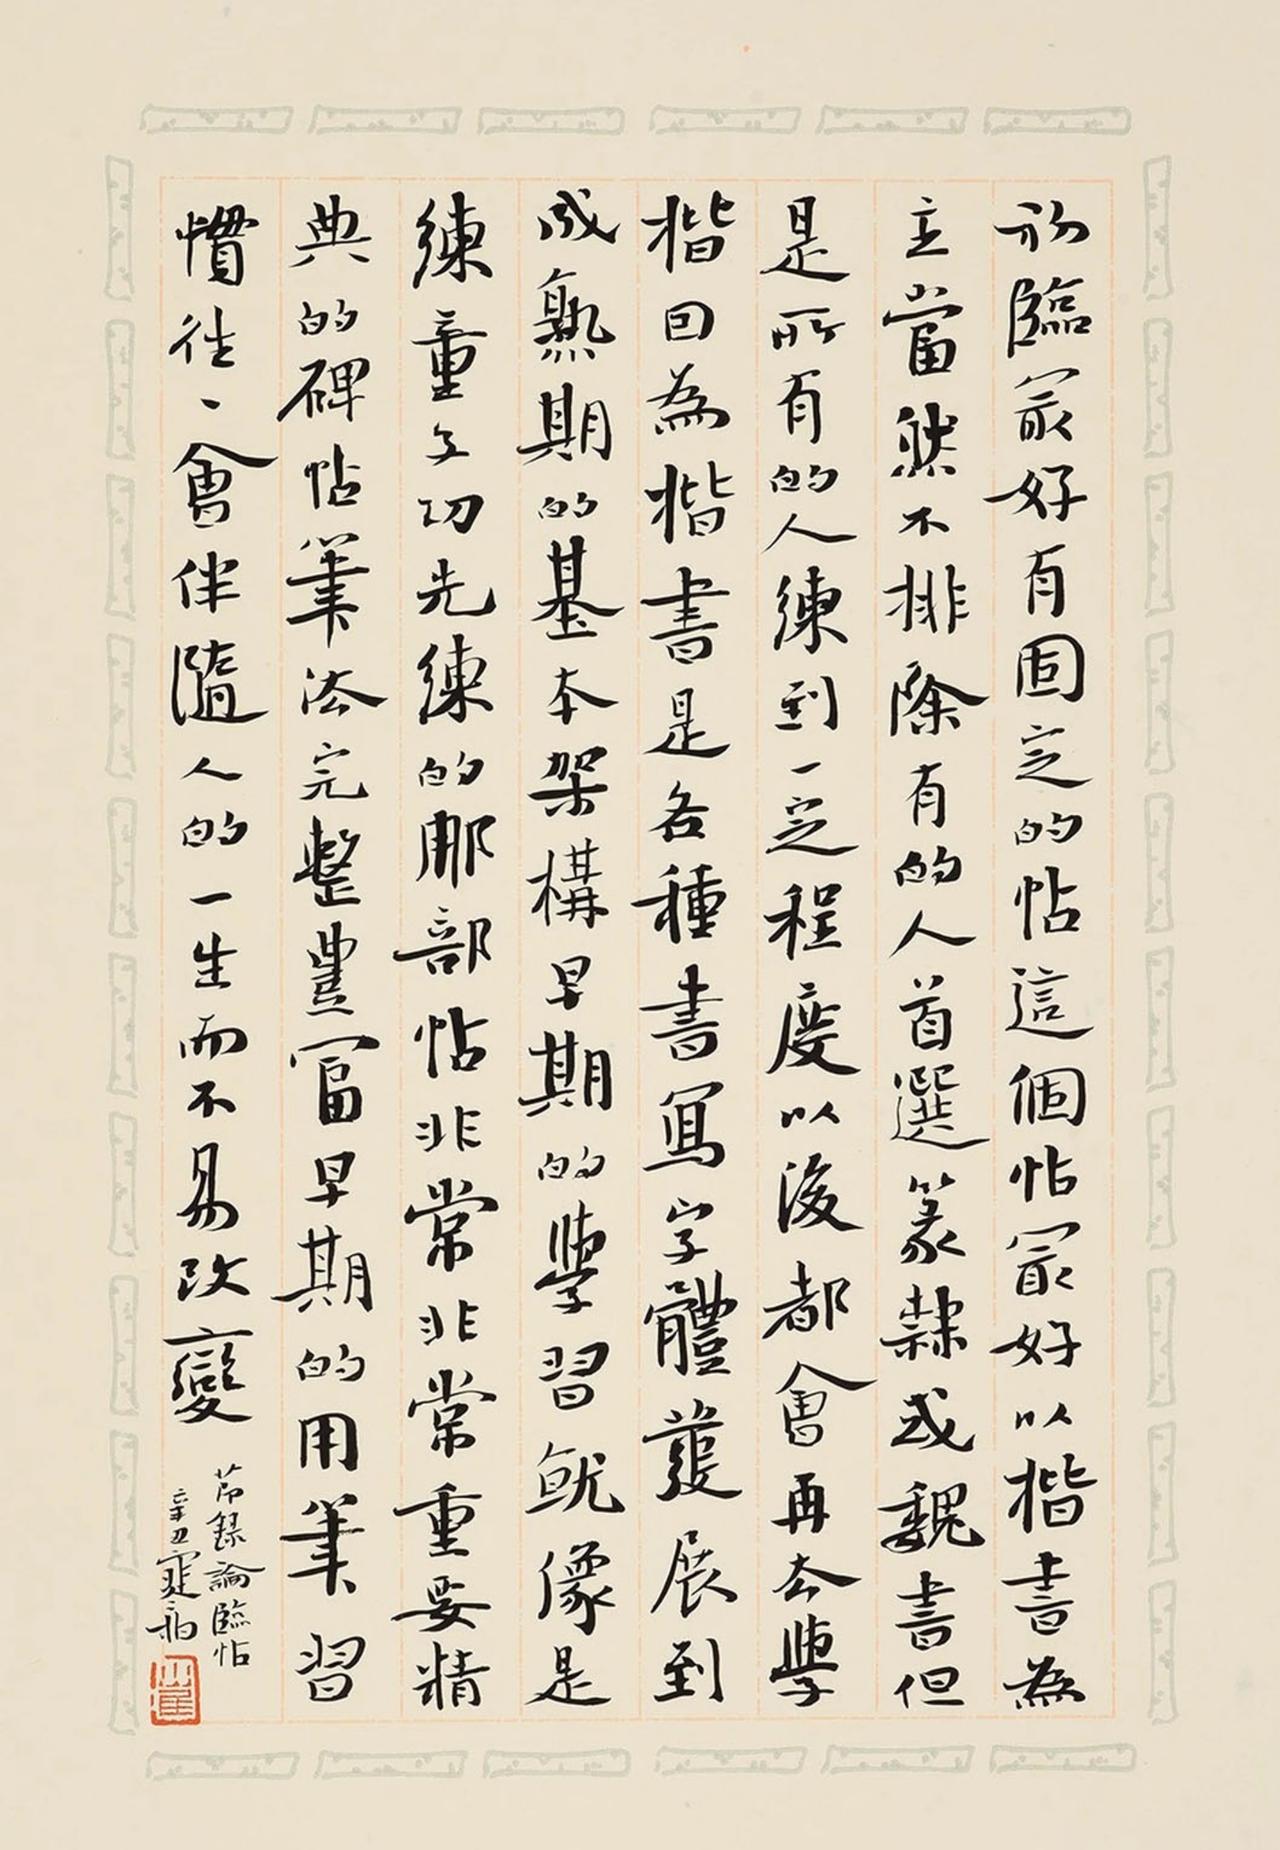 初臨冣好有固定的帖這個帖冣好以楷書為
主當然不排除有的人首選篆隸或魏書但
是所有的人練到一定程度以後都會再去學
楷回為楷書是各種書寫字體發展到
成熟期的基本架構早期的學習就像是
練童子功先練的那部帖非常非常重要精
典的碑帖筆法完整豐富早期的用筆習
慣往〻會伴隨人的一生而不易改變
節錄論臨帖
辛丑寔